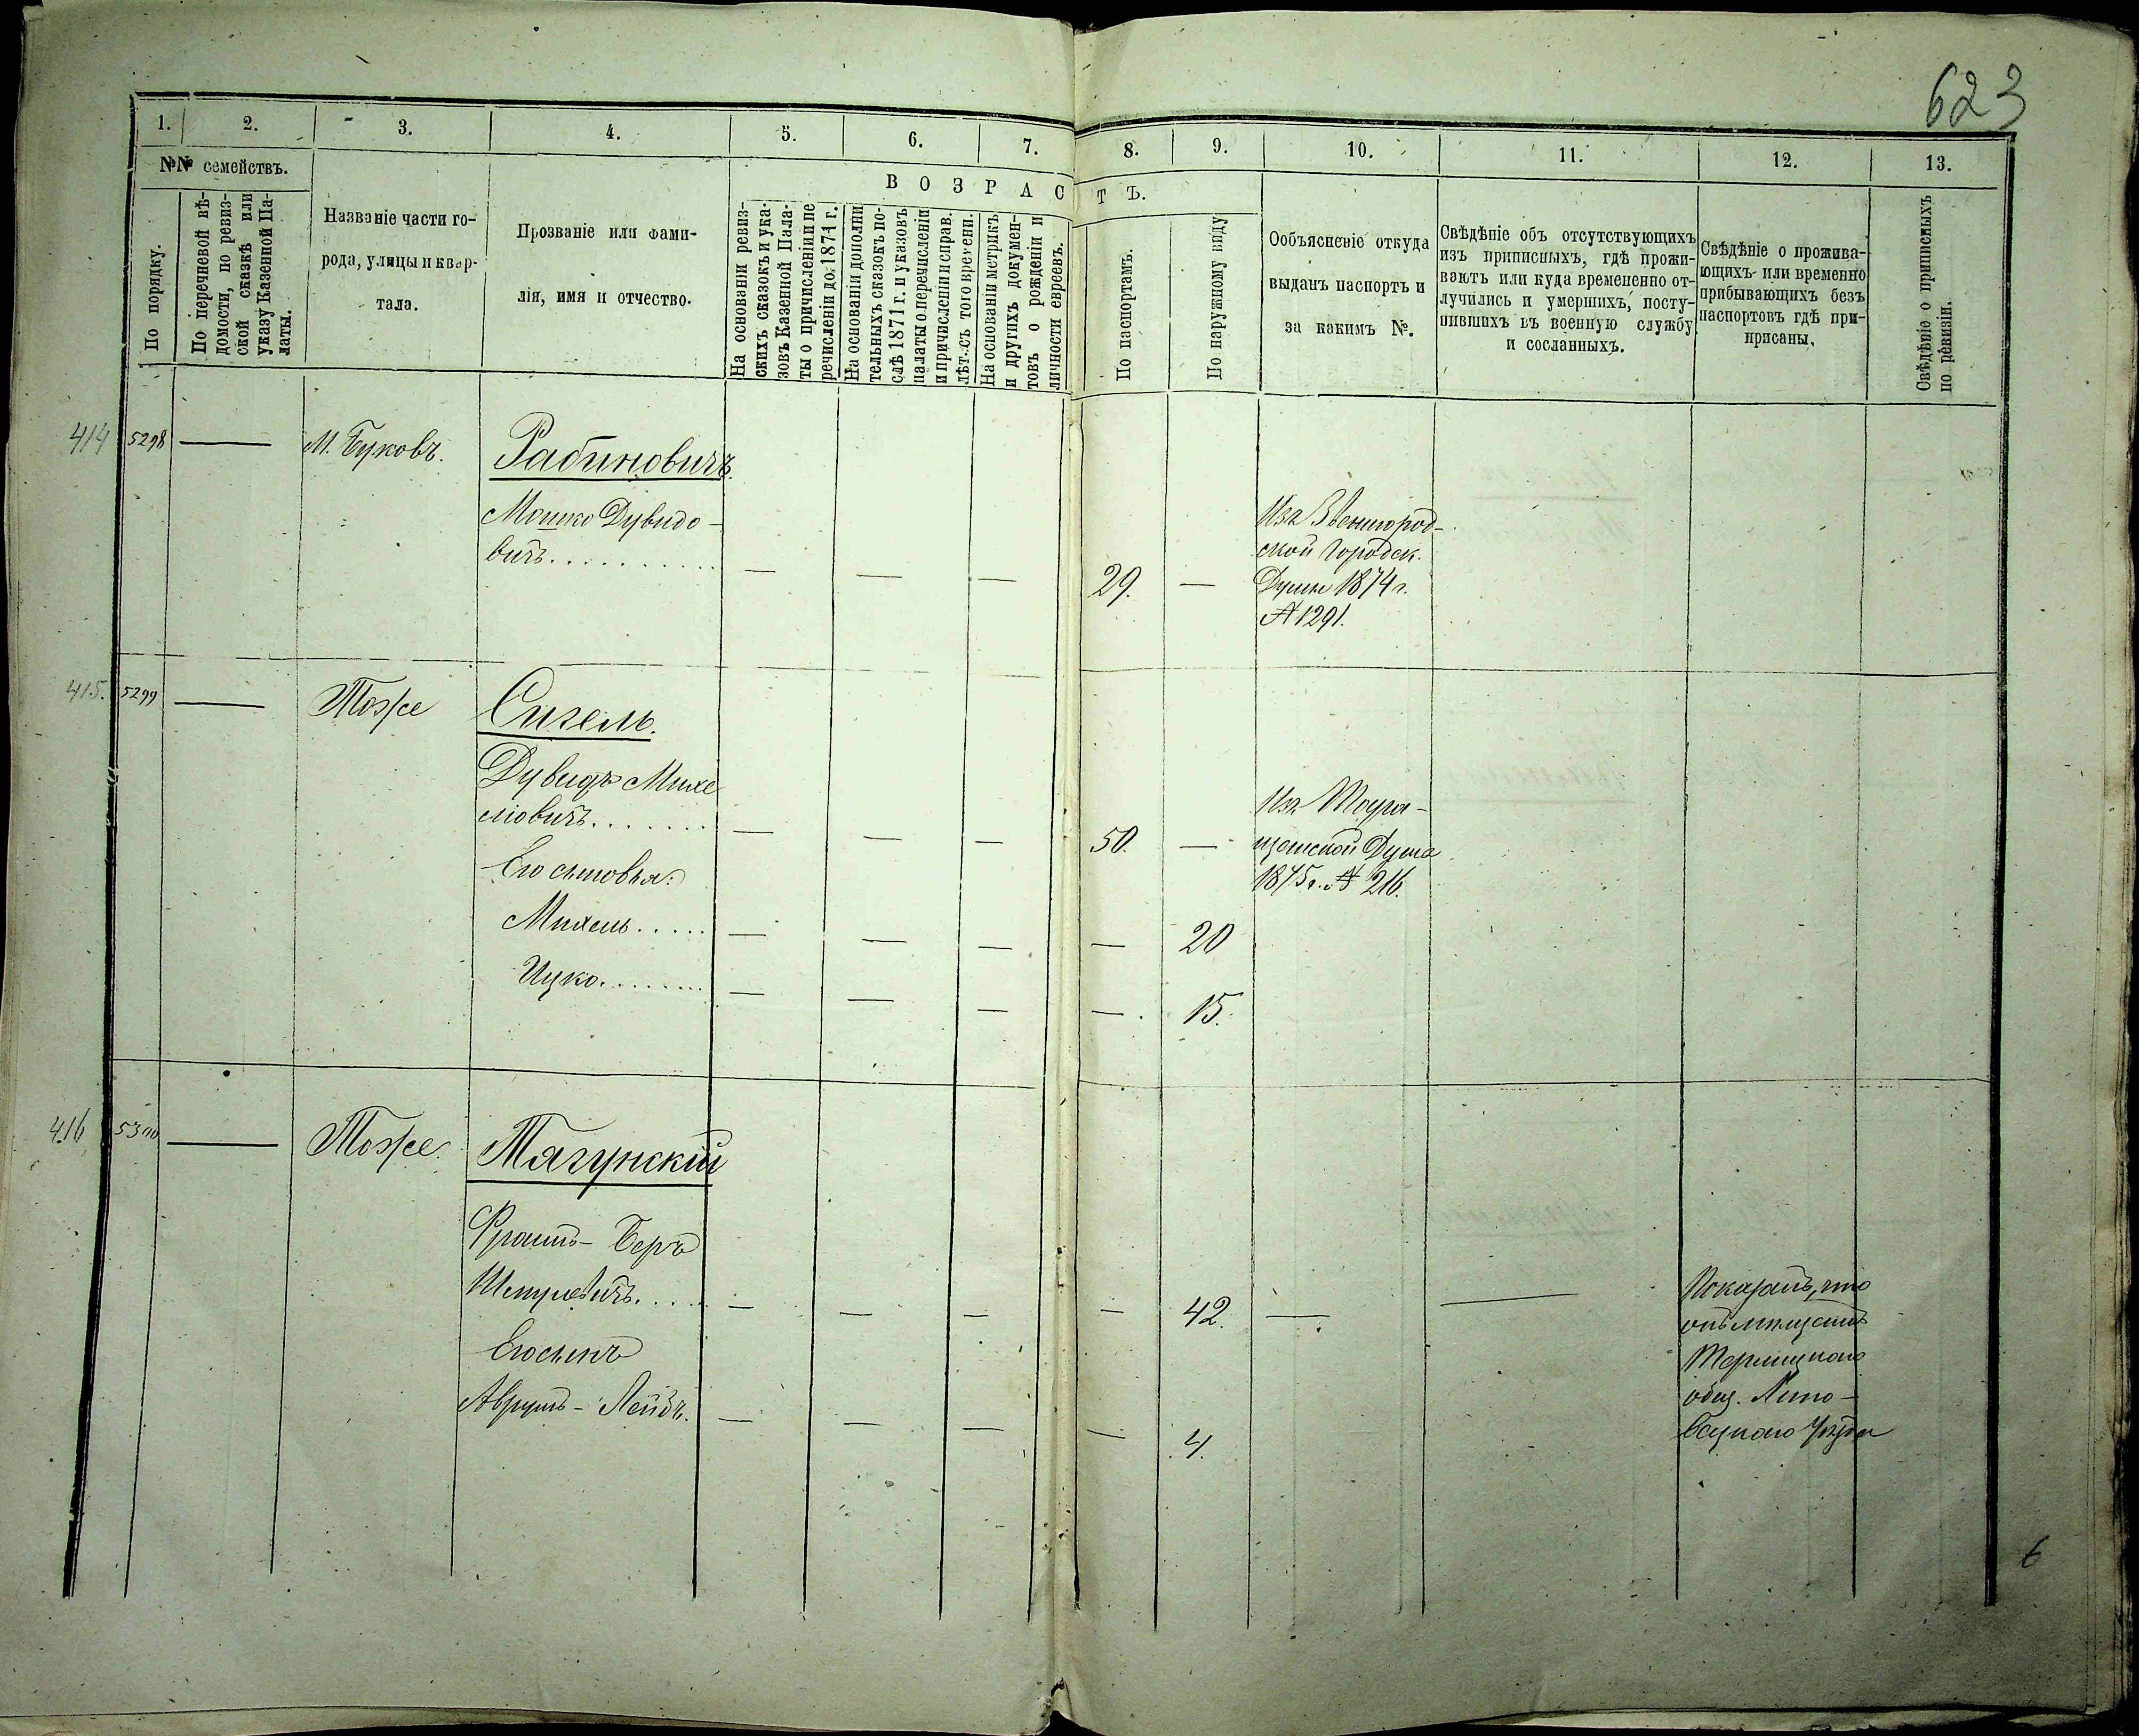 623
1. 2. 3. 4. 5. 6. 7. 8. 9. 10. 11. 12. 13.
№№ семействъ.
По порядку.
По перечневой вѣ-
домости, по ревиз-
ской сказкѣ или
указу Казенной Па-
латы.
Названіе части го-
рода, улицы и квар-
тала.
Прозваніе или фами-
лія, имя и отчество.
ВОЗРАСТЪ.
На основаніи ревиз-
скихъ сказокъ и ука-
зовъ Казенной Пала-
ты о причисленіи и пе
речисленіи до 1871 г.
На основаніи дополни
тельныхъ сказокъ по-
слѣ 1871 г. и указовъ
палаты о перечисленіи
и причисленіи и справ.
лѣт. съ того времени.
На основаніи метрикъ
и другихъ докумен-
товъ о рожденіи и
личности евреевъ.
По паспортамъ.
По наружному виду
Ообъясненіе откуда
выданъ паспортъ и
за какимъ №.
Свѣдѣніе объ отсутствующихъ
изъ приписныхъ, гдѣ прожи-
ваютъ или куда временно от-
лучились и умершихъ, посту-
пившихъ въ военную службу
и сосланныхъ.
Свѣдѣніе о прожива-
ющихъ или временно
прибывающихъ безъ
паспортовъ гдѣ при-
писаны.
Свѣдѣніе о приписныхъ
по ревизіи.
414 5298 — М. Буковъ. Рабиновичъ.
Мошко Дувидо-
вичъ. — — — 29. —
Изъ Звенигород-
ской Городск.
Думы 1874 г.
№ 1291.
415. 5299 — Тоже Сигель.
Дувидъ Михе
левичъ. — — — 50. —
Изъ Тара-
щанской Думы
1875 г. № 216.
Его сыновья:
Михель — — — — 20
Ицко. — — — — 15.
416 5300 — Тоже. Тягунскій
Фроимъ-Беръ
Шмулевичъ. — — — — 42. — —
Его сынъ
Аврумъ-Лейбъ. — — — — 4.
Показалъ, что
онъ мѣщанинъ
общ. Липо-
вецкаго Уѣзда
6